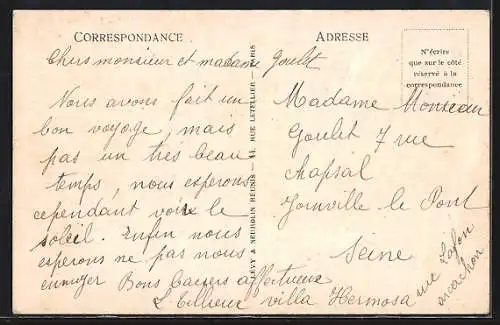 CORRESPONDANCE
ADRESSE
N'écrire
que sur le côté
réservé à la
correspondance
Chers monsieur et madame Goulet
Nous avons fait un
bon voyage, mais
pas un très beau
temps, nous esperons
cependant voir le
soleil. Enfin nous
esperons ne pas nous
ennuyer Bons baisers affectueux
villa Hermosa
rue
arcachon
Madame Monsieur
Goulet 7 rue
chapsal
Joinville le Pont
Seine
LEVY & NEURDEIN RÉUNIS — 44, RUE LETELLIER — PARIS